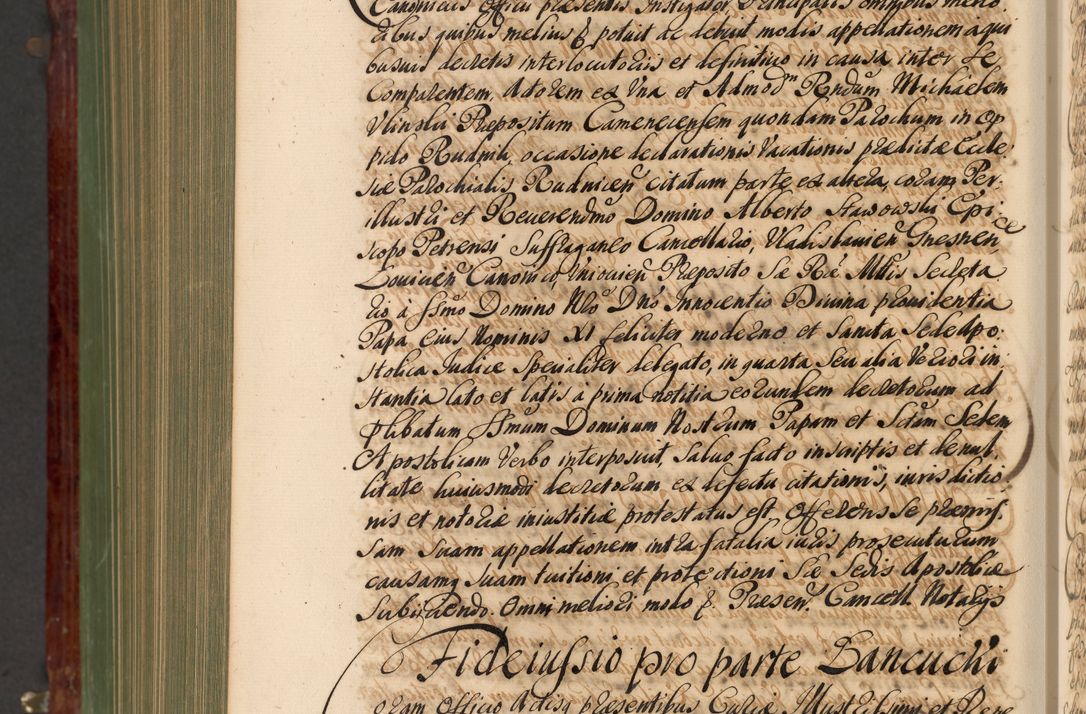 Canonicus Officii præsentis Instigator Principalis omnibus melio
ribus quibus melius & potuit ac debuit modis appellationem a qui
busuis decretis interlocutoriis et definitiuo in causa inter se
Comparentem, Actorem ex Vna et Admod~m Rndum Michaelem
Vlinslii Præpositum Camenecensem quondam Parochum in op
pido Rudnik, occasione declarationis Vacationis prædictæ Eccle
siæ Parochialis Rudnicen citatum parte ex altera, coram Per.
illustri et Reuerendmo Domino Alberto Stawowski Epi
scopo Petrensi Suffraganeo Cancellario, Vladislauien Gnesnen
Louicien Canonico, Præposito Sæ Ræ Mttis Secreta
rio à Ssmo Domino Nro Dno Innocentio Diuina prouidentia
Papa eius Nominis XI feliciter moderno et Sancta Sede Apo
stolica Iudice Specialiter delegato, in quarta seu alia Veriori in
stantia lato et latis a prima notitia eorundem decretorum ad
plibatum Ssmum Dominum Nostrum Papam et Sctam Sedem
Apostolicam Verbo interposuit, saluo facto in scriptis et de nul
litate huiusmodi decretorum ex defectu citationis, iuris dictio
nis et notoriæ iniustitiæ protestatus est offerens se præmis.
sam suam appellationem intra fatalia iuris prosecuturum
causamq suam tuitioni et protectioni Sæ Sedis Apostolicæ
Subijciendo. Omni meliori modo &. Præsen. Cancell. Notarijs
Fideiussio pro parte Bancuchi
oram Officio Actisq præsentibus Curiæ Illustrissimi et Reue